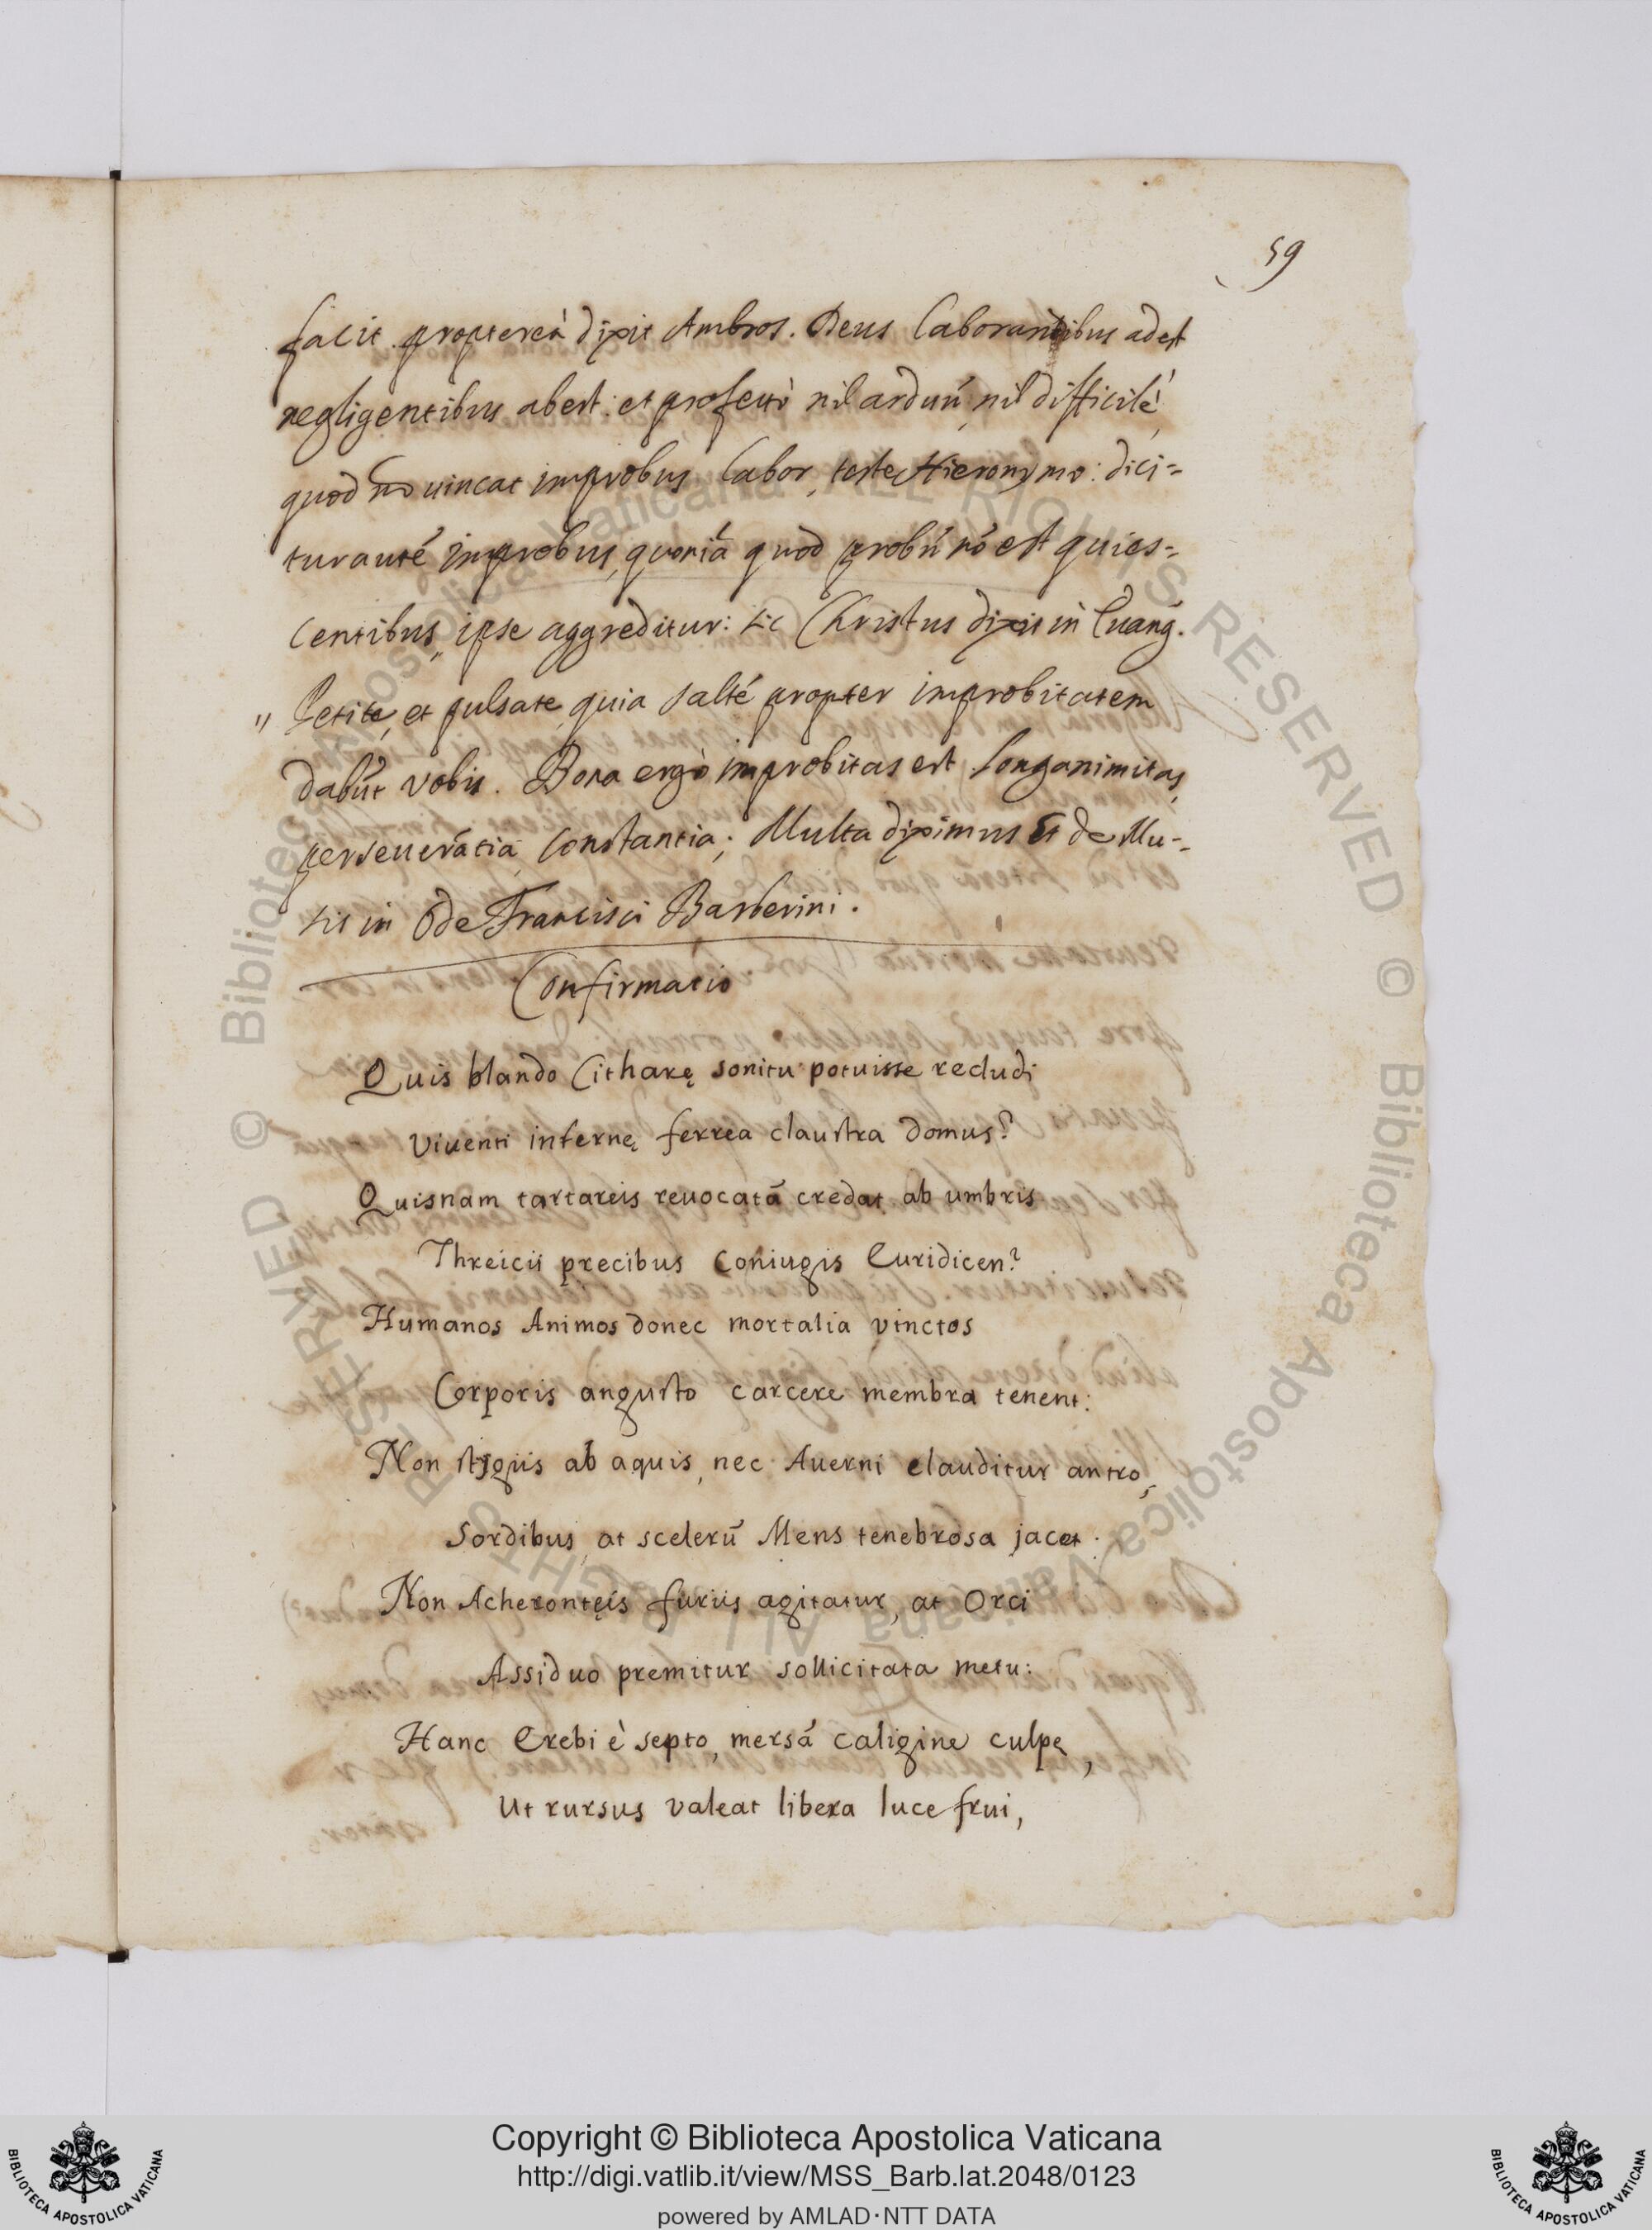 59
facit. proptereà dixit Ambros. Deus laborantibus adest
negligentibus abest: et profectò nil arduũ, nil difficilè,
quod nõ uincat improbus labor, teste Hieronymo: dici=
tur autẽ improbus, quoniã quod probũ nõ est quies=
centibus, ipse aggreditur: sic Christus dixit in Euang̃.
" Petite, et pulsate, quia saltẽ propter improbitatem
dabũt vobis. Bona ergò improbitas est longanimitas,
perseuerãtia, constantia; Multa diximus et de Mu-
sis in Ode Francisci Barberini.
Confirmatio
Quis blando Citharę sonitu potuisse recludi
Viuenti infernę ferrea claustra domus?
Quisnam tartareis reuocatã credat ab umbris
Threicii precibus Coniugis Euridicen?
Humanos Animos donec mortalia vinctos
Corporis angusto carcere membra tenent:
Non stygiis ab aquis, nec Auerni clauditur antro,
Sordibus at scelerũ Mens tenebrosa jacet.
Non Acherontęis furiis agitatur, at Orci
Assiduo premitur sollicitata metu:
Hanc Erebi è septo, mersã caligine culpę,
Ut rursus valeat libera luce frui,
Copyright © Biblioteca Apostolica Vaticana
http://digi.vatlib.it/view/MSS_Barb.lat.2048/0123
powered by AMLAD·NTT DATA
BIBLIOTECA APOSTOLICA VATICANA
BIBLIOTECA APOSTOLICA VATICANA
© Biblioteca Apostolica Vaticana ALL RIGHTS RESERVED © Biblioteca Apostolica Vaticana ALL RIGHTS RESERVED